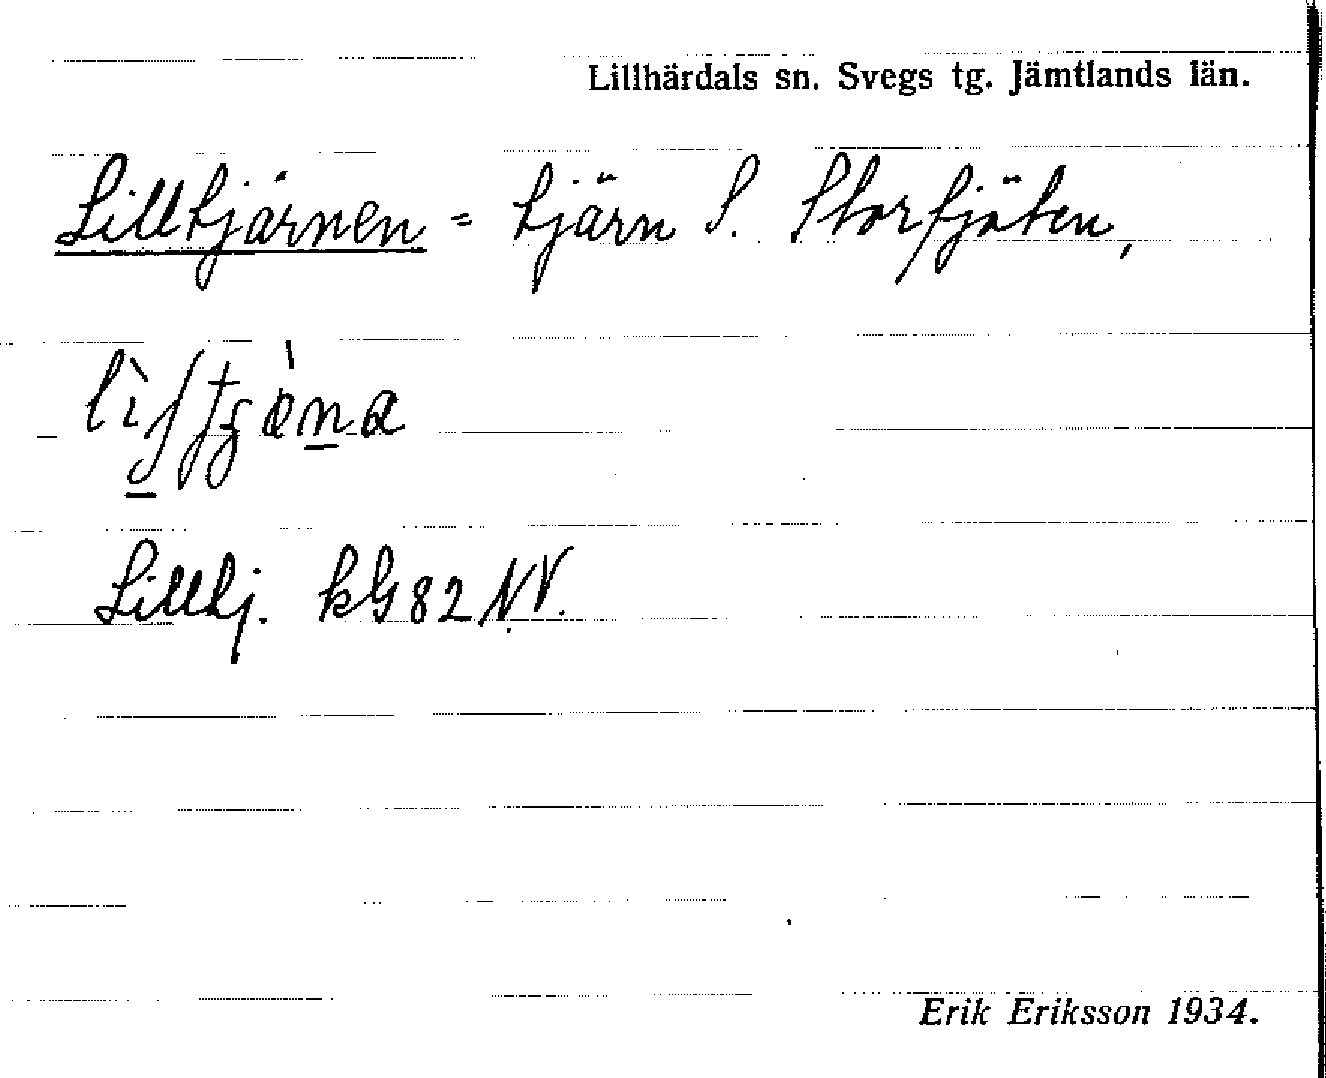 Lillhärdals sn. Svegs tg. Jämtlands län.
Lilltjärnen = tjärn S. Storfjäten,
Lilltj. kG 82 NV.
Erik Eriksson 1934.